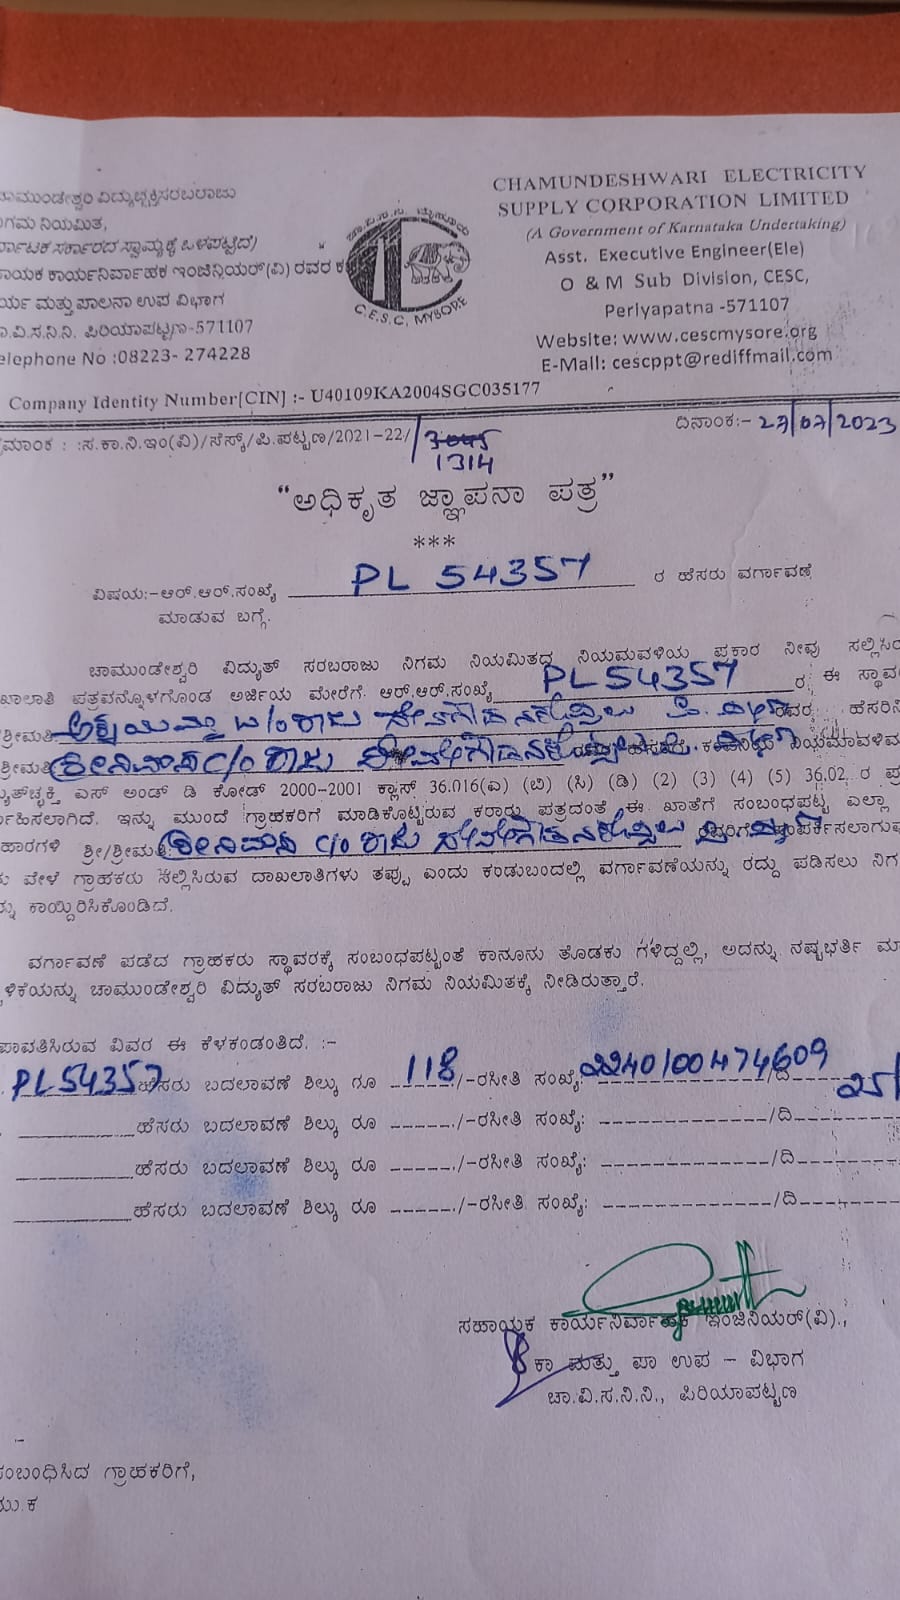 ಚಾಮುಂಡೇಶ್ವರಿ ವಿದ್ಯುಚ್ಛಕ್ತಿಸರಬರಾಜು
ನಿಗಮ ನಿಯಮಿತ,
ರ್ನಾಟಕ ಸರ್ಕಾರದ ಸ್ವಾಮ್ಯಕ್ಕೆ ಒಳಪಟ್ಟಿದೆ)
ಾಯಕ ಕಾರ್ಯನಿರ್ವಾಹಕ ಇಂಜಿನಿಯರ್(ವಿ) ರವರ ಕ
ರ್ಯ ಮತ್ತು ಪಾಲನಾ ಉಪ ವಿಭಾಗ
ಾ.ವಿ.ಸ.ನಿ.ನಿ. ಪಿರಿಯಾಪಟ್ಟಣ-571107
elephone No :08223- 274228
C.E.S.C, MYSORE
CHAMUNDESHWARI ELECTRICITY
SUPPLY CORPORATION LIMITED
(A Government of Karnataka Undertaking)
Asst. Executive Engineer(Ele)
O & M Sub Division, CESC,
Periyapatna -571107
Website: www.cescmysore.org
E-Mail: cescppt@rediffmail.com
Company Identity Number[CIN] :- U40109KA2004SGC035177
ದಿನಾಂಕ:- 27/07/2023
ಮಾಂಕ : :ಸ.ಕಾ.ನಿ.ಇಂ(ವಿ)/ಸೆಸ್ಕ್/ಪಿ.ಪಟ್ಟಣ/2021-22/ 3045
1314
"ಅಧಿಕೃತ ಜ್ಞಾಪನಾ ಪತ್ರ"
***
ವಿಷಯ:-ಆರ್.ಆರ್.ಸಂಖ್ಯೆ PL 54357 ರ ಹೆಸರು ವರ್ಗಾವಣೆ
ಮಾಡುವ ಬಗ್ಗೆ.
ಚಾಮುಂಡೇಶ್ವರಿ ವಿದ್ಯುತ್ ಸರಬರಾಜು ನಿಗಮ ನಿಯಮಿತದ ನಿಯಮವಳಿಯ ಪ್ರಕಾರ ನೀವು ಸಲ್ಲಿಸಿರ
ಖಲಾತಿ ಪತ್ರವನ್ನೊಳಗೊಂಡ ಅರ್ಜಿಯ ಮೇರೆಗೆ ಆರ್.ಆರ್.ಸಂಖ್ಯೆ PL54357 ರ ಈ ಸ್ಥಾವ
ಶ್ರೀಮತಿ ರವರ ಹೆಸರಿನಿ
ಶ್ರೀಮತಿ ಶ್ರೀನಿವಾಸ C/o ರಾಜು ನಿಯಮಾವಳಿಯ
ಯುತ್‌ಚ್ಛಕ್ತಿ ಎಸ್ ಅಂಡ್ ಡಿ ಕೋಡ್ 2000-2001 ಕ್ಲಾಸ್ 36.016(ಎ) (ಬಿ) (ಸಿ) (ಡಿ) (2) (3) (4) (5) 36.02 ರ ಪ್ರ
ರ್ಹಿಸಲಾಗಿದೆ. ಇನ್ನು ಮುಂದೆ ಗ್ರಾಹಕರಿಗೆ ಮಾಡಿಕೊಟ್ಟಿರುವ ಕರಾರು ಪತ್ರದಂತೆ ಈ ಖಾತೆಗೆ ಸಂಬಂಧಪಟ್ಟ ಎಲ್ಲಾ
ಹಾರಗಳಿ ಶ್ರೀ/ಶ್ರೀಮತಿ: ಶ್ರೀನಿವಾಸ C/o ರಾಜು
ವೇಳೆ ಗ್ರಾಹಕರು ಸಲ್ಲಿಸಿರುವ ದಾಖಲಾತಿಗಳು ತಪ್ಪು ಎಂದು ಕಂಡುಬಂದಲ್ಲಿ ವರ್ಗಾವಣೆಯನ್ನು ರದ್ದು ಪಡಿಸಲು ನಿಗ
ನ್ನು ಕಾಯ್ದಿರಿಸಿಕೊಂಡಿದೆ.
ವರ್ಗಾವಣೆ ಪಡೆದ ಗ್ರಾಹಕರು ಸ್ಥಾವರಕ್ಕೆ ಸಂಬಂಧಪಟ್ಟಂತೆ ಕಾನೂನು ತೊಡಕು ಗಳಿದ್ದಲ್ಲಿ, ಅದನ್ನು ನಷ್ಟಭರ್ತಿ ಮಾ
ಳಿಕೆಯನ್ನು ಚಾಮುಂಡೇಶ್ವರಿ ವಿದ್ಯುತ್ ಸರಬರಾಜು ನಿಗಮ ನಿಯಮಿತಕ್ಕೆ ನೀಡಿರುತ್ತಾರೆ.
ಪಾವತಿಸಿರುವ ವಿವರ ಈ ಕೆಳಕಂಡಂತಿದೆ. :-
PL54357 ಹೆಸರು ಬದಲಾವಣೆ ಶಿಲ್ಕು ರೂ 118/-ರಸೀತಿ ಸಂಖ್ಯೆ: 2240100474609/ದಿ 25/
ಹೆಸರು ಬದಲಾವಣೆ ಶಿಲ್ಕು ರೂ ------/-ರಸೀತಿ ಸಂಖ್ಯೆ: --------------/ದಿ
ಹೆಸರು ಬದಲಾವಣೆ ಶಿಲ್ಕು ರೂ ------/-ರಸೀತಿ ಸಂಖ್ಯೆ: --------------/ದಿ
ಹೆಸರು ಬದಲಾವಣೆ ಶಿಲ್ಕು ರೂ ------/-ರಸೀತಿ ಸಂಖ್ಯೆ: --------------/ದಿ
ಸಹಾಯಕ ಕಾರ್ಯನಿರ್ವಾಹಕ ಇಂಜಿನಿಯರ್(ವಿ).,
ಕಾ ಮತ್ತು ಪಾ ಉಪ – ವಿಭಾಗ
ಚಾ.ವಿ.ಸ.ನಿ.ನಿ., ಪಿರಿಯಾಪಟ್ಟಣ
ಸಂಬಂಧಿಸಿದ ಗ್ರಾಹಕರಿಗೆ,
ಮು.ಕ